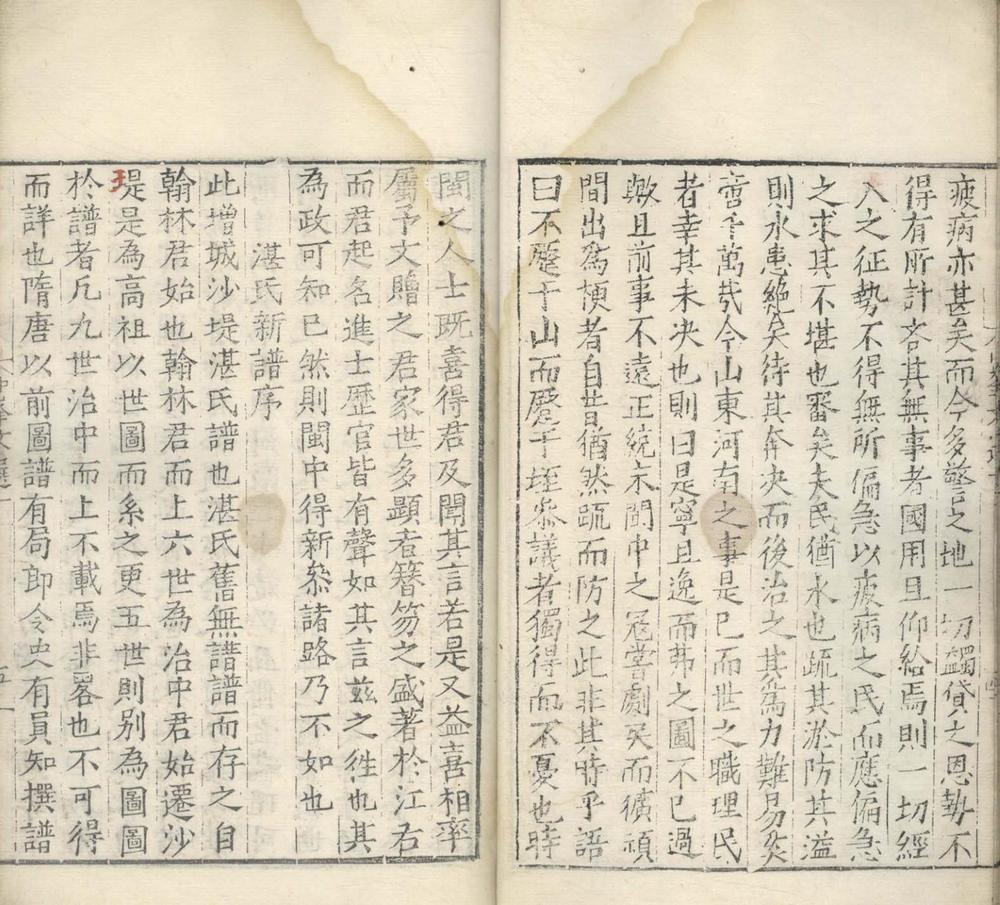 疲病亦甚矣而今多警之地一切蠲貸之恩勢不
得有所計吝其無事者國用且仰給焉則一切經
入之征勢不得無所偏急以疲病之民而應偏急
之求其不堪也審矣夫民猶水也疏其淤防其溢
則水患絕矣待其奔决而後治之其為力難易奚
啻千萬哉今山東河南之事是已而世之職理民
者幸其未决也則曰是寧且逸而弗之圖不已過
歟且前事不遠正統末閩中之冦嘗劇矣而獷頑
間出為梗者自昔猶然疏而防之此非其時乎語
曰不蹷于山而蹷于垤叅議者獨得而不憂也時
閩之人士既喜得君及聞其言若是又益喜相率
屬予文贈之君家世多顯者簮笏之盛著於江右
而君起名進士歷官皆有聲如其言兹之徃也其
為政可知已然則閩中得新叅諸路乃不如也
湛氏新譜序
此增城沙堤湛氏譜也湛氏舊無譜譜而存之自
翰林君始也翰林君而上六世為治中君始遷沙
堤是為高祖以世圖而系之更五世則别為圖圖
於譜者凡九世治中而上不載焉非畧也不可得
而詳也隋唐以前圖譜有局郎令史有員知撰譜